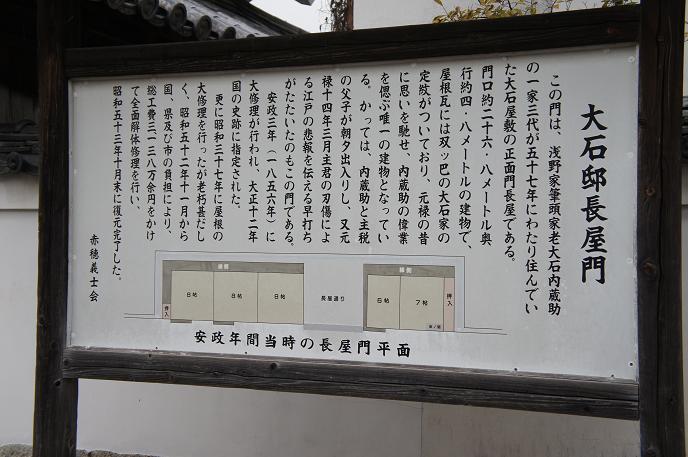 大石邸長屋門
この門は、浅野家筆頭家老大石内蔵助
の一家三代が五十七年にわたり住んでい
た大石屋敷の正面門長屋である。
門口約二十六・八メートル奥
行約四・八メートルの建物で、
屋根瓦には双ッ巴の大石家の
定紋がついており、元禄の昔
に思いを馳せ、内蔵助の偉業
を偲ぶ唯一の建物となってい
る。かっては、内蔵助と主税
の父子が朝夕出入りし、又元
禄十四年三月主君の刃傷によ
る江戸の悲報を伝える早打ち
がたたいたのもこの門である。
安政三年（一八五六年）に
大修理が行われ、大正十二年
国の史跡に指定された。
更に昭和三十七年に屋根の
大修理を行ったが老朽甚だし
く、昭和五十二年十一月から
国、県及び市の負担により、
総工費三一三八万余円をかけ
て全面解体修理を行い、
昭和五十三年十月末に復元完了した。
赤穂義士会
縁側
押入
8帖
8帖
8帖
長屋通り
縁側
6帖
7帖
押入
安政年間当時の長屋門平面